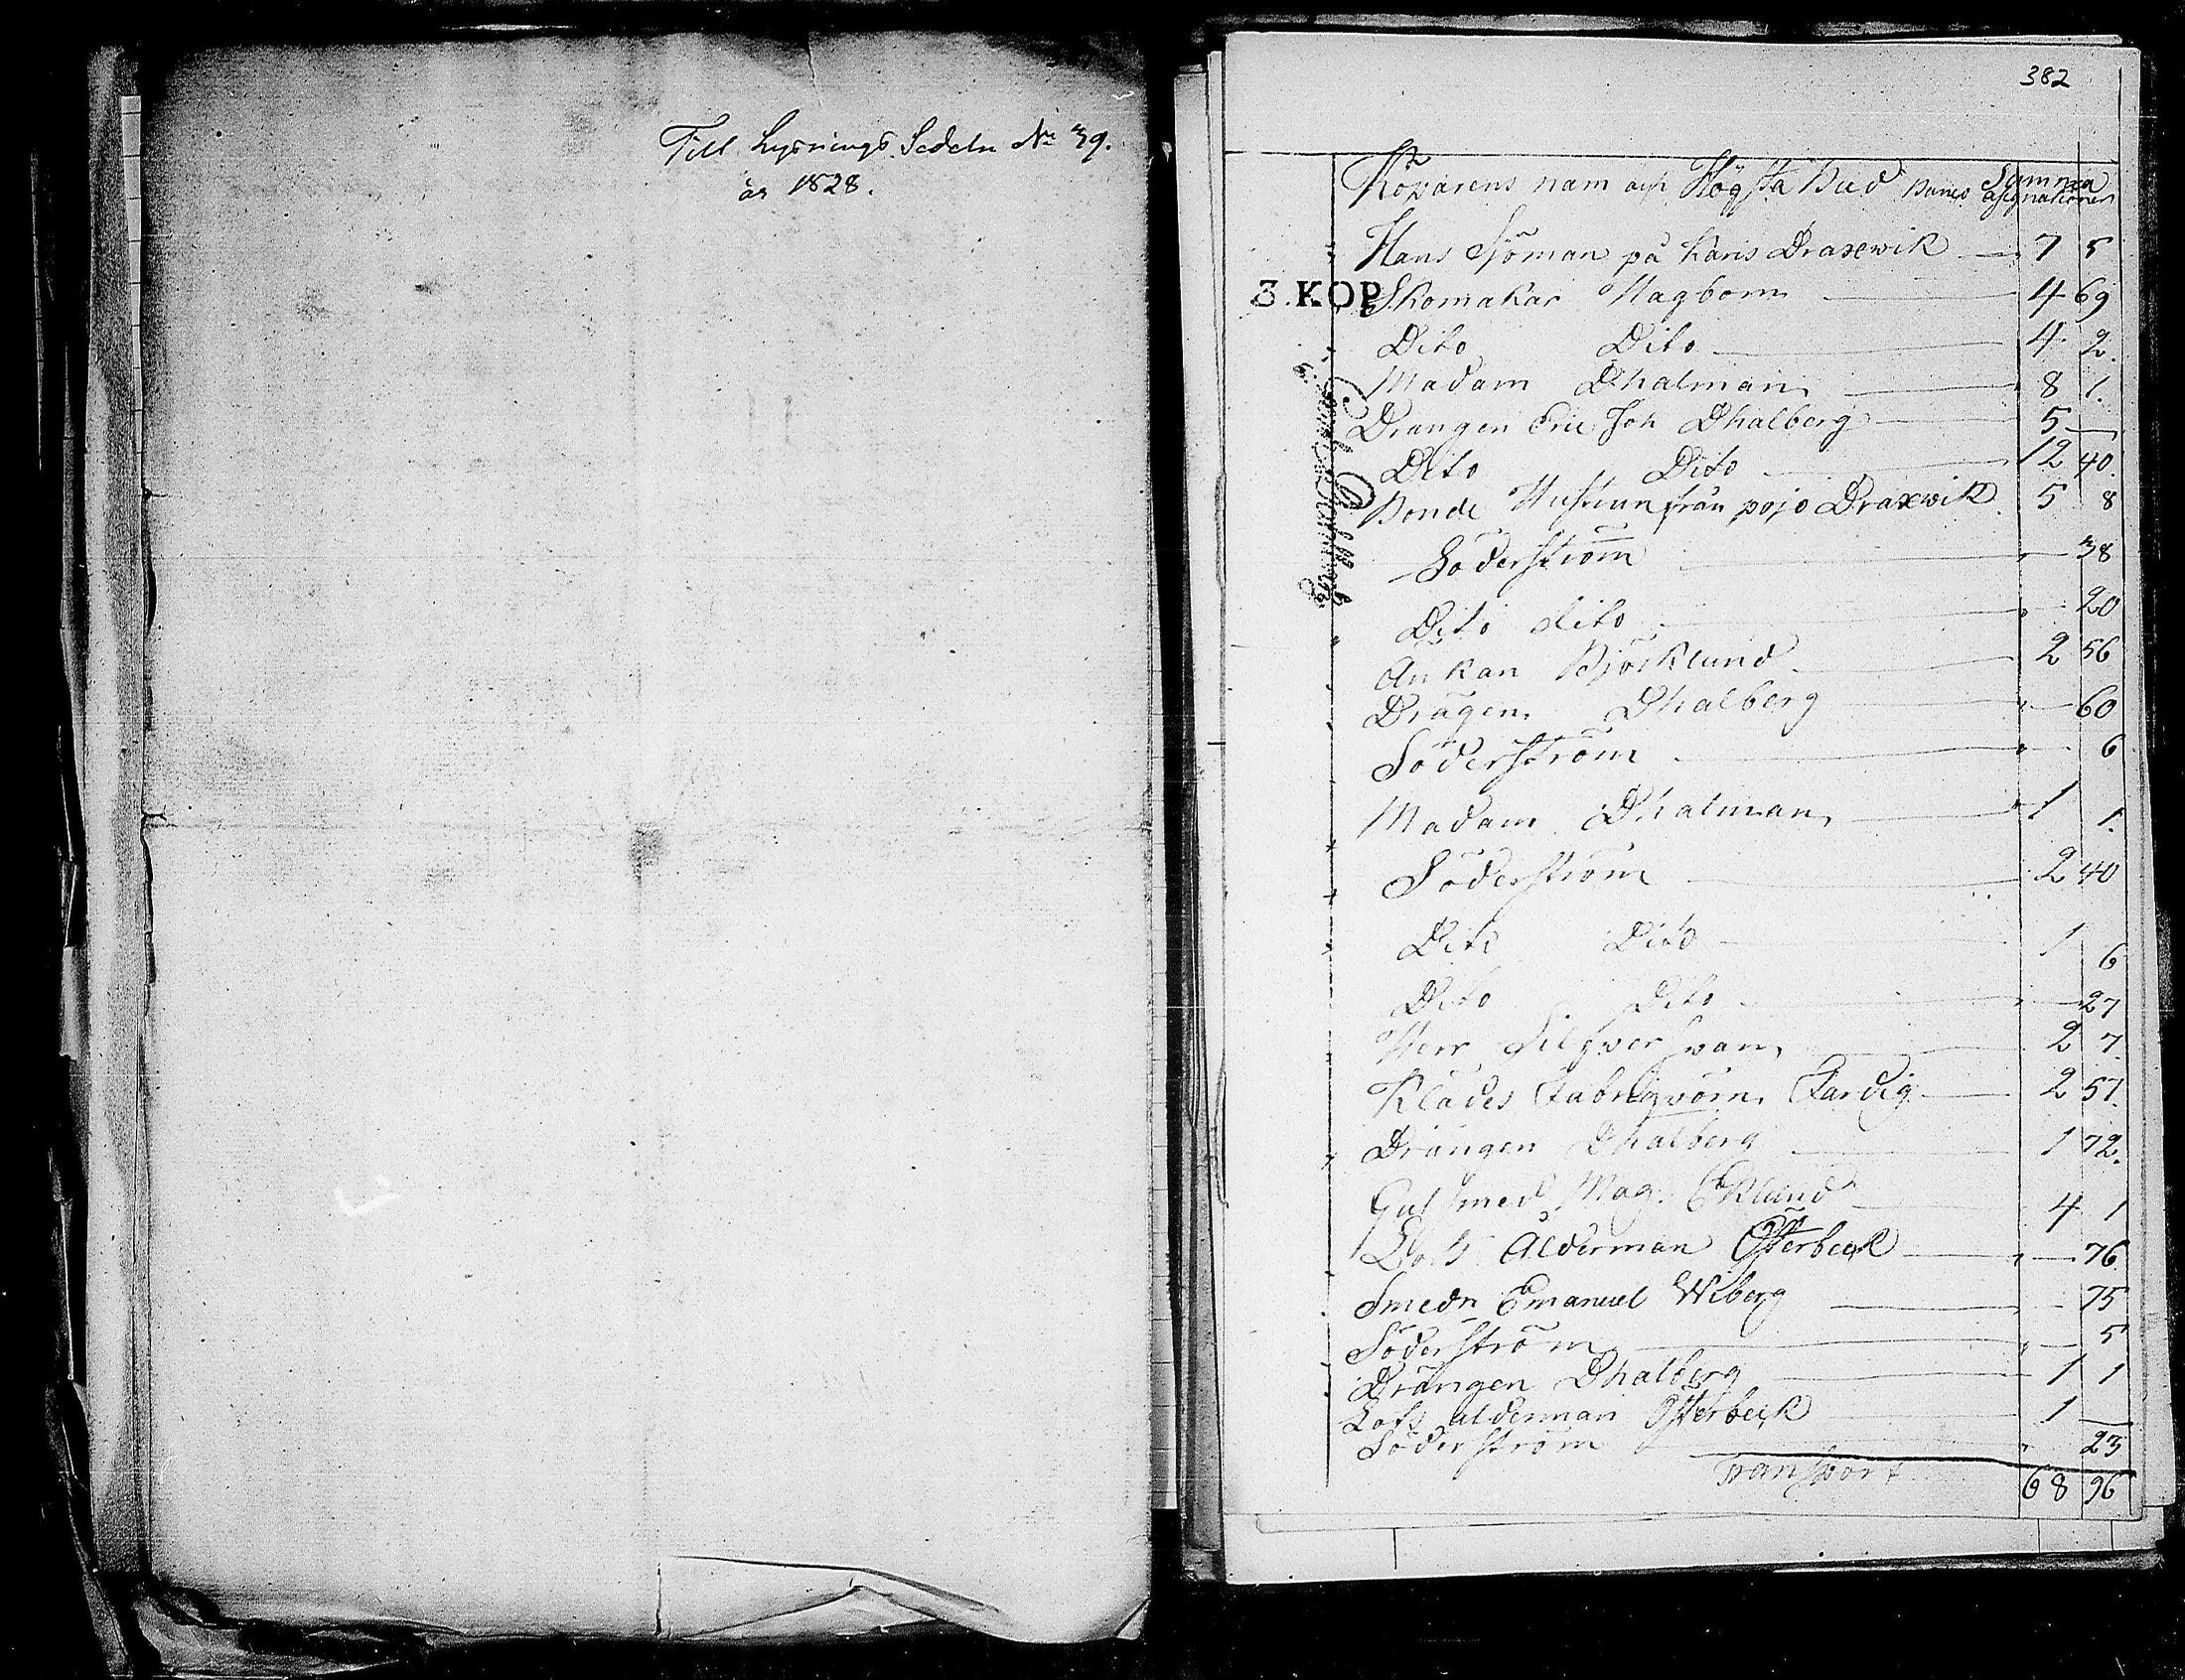 Till Lysnings Sedeln No 39.
år 1828.
382
Köparens nam och Högsta Bud Banco Summa
assignationer
Hans Sjöman på Karis Draxwik 7 5
3. KOP
Skomakar Hagbom 4 69
Dito Dito 4 2.
Madam Dhalman 8 1.
Drangen Eric Joh Dhalberg 5 —
Dito Dito 12 40.
Bonde Hustrun från pojo Draxwik 5 8
Söderström " 38
Dito dito " 20
Ankan Björklund 2 56
Drägen Dhalberg " 60
Söderström " 6
Madam Dhalman 1 1.
Söderström 2 40
Dito Dito 1 6
Dito Dito " 27
Herr Silfversvan 2 7.
Klädes Fabriqvörn Färdig 2 57.
Drängen Dhalberg 1 72.
Gulsmed Mag. Eklund 4 1
Lots Ålderman Österbeck " 76
Smedn Emanuel Wiberg 75
Söderström " 5
Drängen Dhalberg 1 1
Lots alderman Österbeck 1 —
Söderström " 23
Transport 68 96